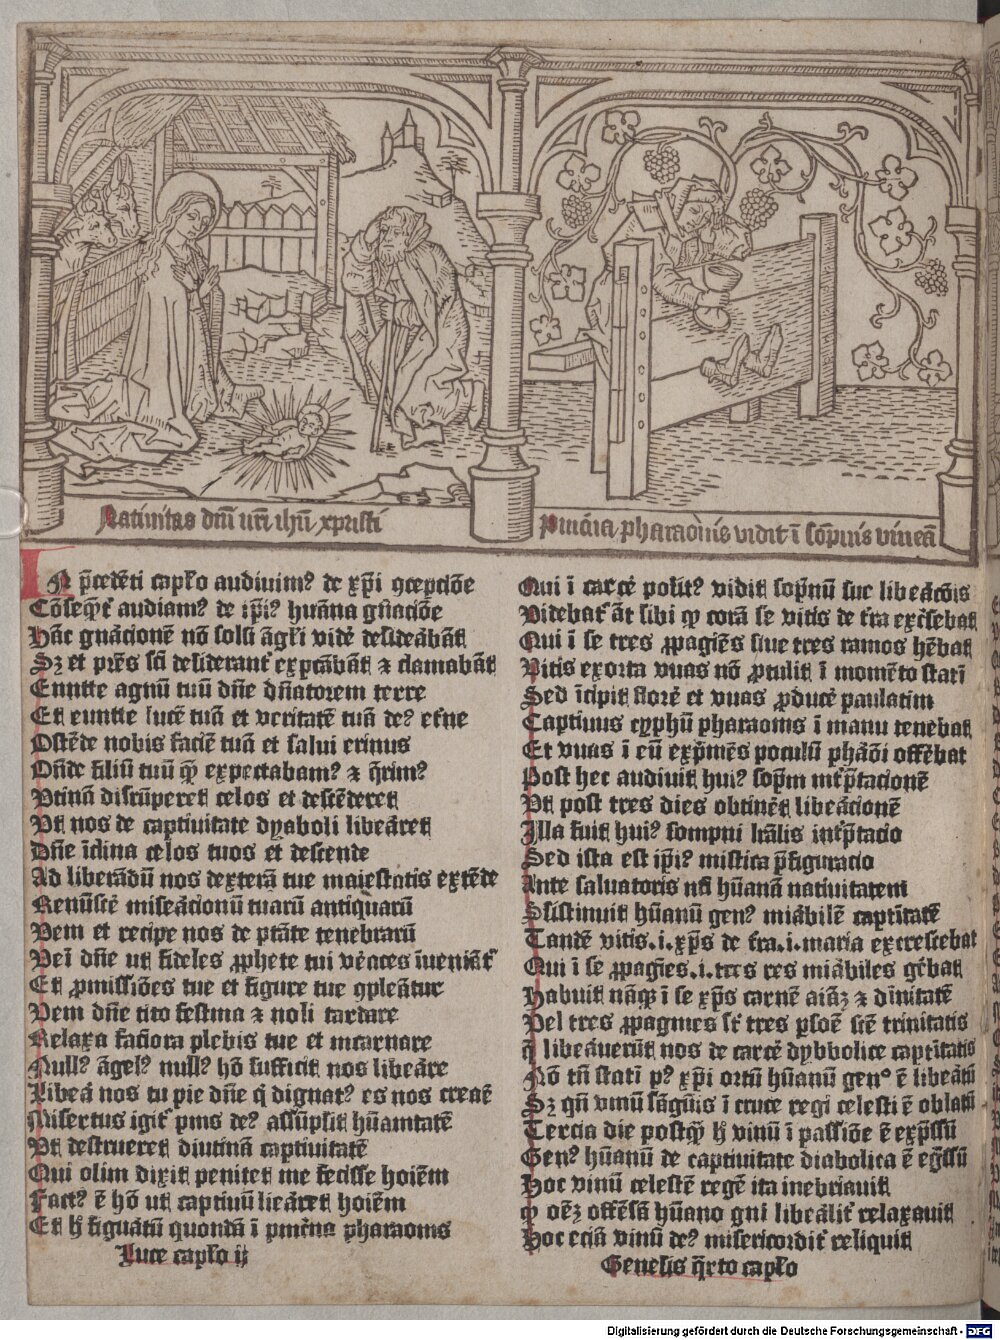 Natiuitas dni nri ihu xpristi
Pincerna pharaonis vidit ī sōpnis vineā
IN p̄cedēti capl'o audiuim⁹ de xp̄i ꝯcepciōe
Cōseq̄nt' audiam⁹ de ip̄i⁹ humāna gn̄aciōe
Hāc gnāacionē nō solū āgl'i vidē desideābāt
Sꝫ et prēs sc̄i desiderant' exp̄tābāt ⁊ clamabāt
Emitte agnū tuū dn̄e dn̄atorem terre
Et emitte lucē tuā et veritatē tuā de⁹ et'ne
Ostēde nobis faciē tuā et salui erimus
Dn̄e filiū tuū q̄ expectabam⁹ ⁊ q̄rim⁹
Vtinā discūperet celos et descēderet
Vt nos de captiuitate dyaboli libeāret
Dn̄e īclina celos tuos et descende
Ad liberādū nos dexterā tue maiestatis extēde
Remīscē miseācionū tuarū antiquarū
Veni et recipe nos de ptāte tenebrarū
Veī dn̄e ut fideles ꝓphete tui vēaces īueniāt'
Et ꝓmissiōes tue et figure tue ꝯpleātur
Veni dn̄e cito festina ⁊ noli tardare
Relaxa faciora plebis tue et incarnare
Null⁹ āgel⁹ null⁹ hō sufficit nos libeāre
Libeā nos tu pie dn̄e q̄ dignat⁹ es nos creaē
Misertus igit' pius de⁹ assūpsit hūanitatē
Vt destrueret diutinā captiuitatē
Qui olim dixit penitet me fecisse hoiēm
Fact⁹ ē hō ut captiuū lieāret hoiēm
Et h̄ figuātū quondā ī pincēna pharaonis
Luce capl'o ij
Qui ī carcē posit⁹ vidit sopnū sue libeācōis
Videbat' āt sibi qp corā se vitis de t'ra exc̄sebat
Qui ī se tres ꝓpagiēs siue tres ramos hēbat
Vitis exorta vuas nō ꝓtulit ī momēto statī
Sed īcipit florē et vuas ꝓducē paulatim
Captiuus cyphū pharaonis ī manu tenebat
Et vuas ī eū exp̄mēs poculū phāōi offēbat
Post hec audiuit hui⁹ sopm̄ int'p̄tacionē
Vt post tres dies obtinēt libeācionē
Illa fuit hui⁹ sompni l'rālis int'p̄tacio
Sed ista est ip̄i⁹ mistica p̄figuracio
Ante saluatoris nr̄i hūanā natiuitatem
Sustinuit hūanū gen⁹ miābilē captītatē
Tandē vitis .i. xp̄s de t'ra .i. maria excrescebat
Qui ī se ꝓpagīes .i. tres res miābiles gēbat
Habuit nāqꝫ ī se xp̄s carnē aīāꝫ ⁊ dīnitatē
Vel tres ꝓpagines sr̄ tres psōē scē trinitatis
q̄ libeāuerūt nos de carcē dybbolice captītatis
Nō tn̄ statī p⁹ xp̄i ortū hūanū gen⁹ ē libeātū
Sꝫ qn̄ vinū sāgūis ī cruce regi celesti ē oblatū
Tercia die postq̄ h̄ vinū ī passiōe ē exp̄ssū
Gen⁹ hūanū de captiuitate diabolica ē eḡssū
Hoc vinū celestē regē ita inebriauit
qp oēꝫ offēsā hūano gn̄i libeālit' relaxauit
Hoc eciā vinū de⁹ misericordit' reliquit
Genesis q̄rto capl'o
Digitalisierung gefördert durch die Deutsche Forschungsgemeinschaft - DFG